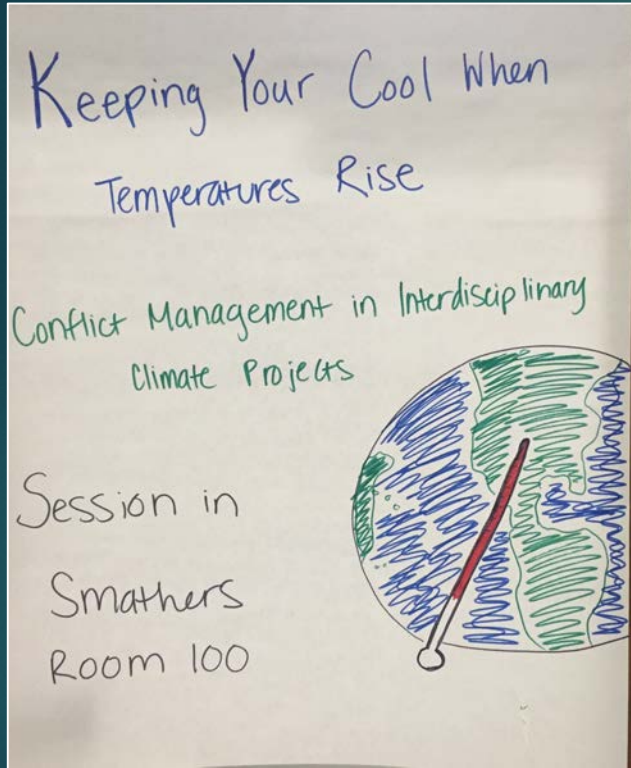 Keeping Your Cool When
Temperatures Rise
Conflict Management in Interdisciplinary
Climate Projects
Session in
Smathers
Room 100